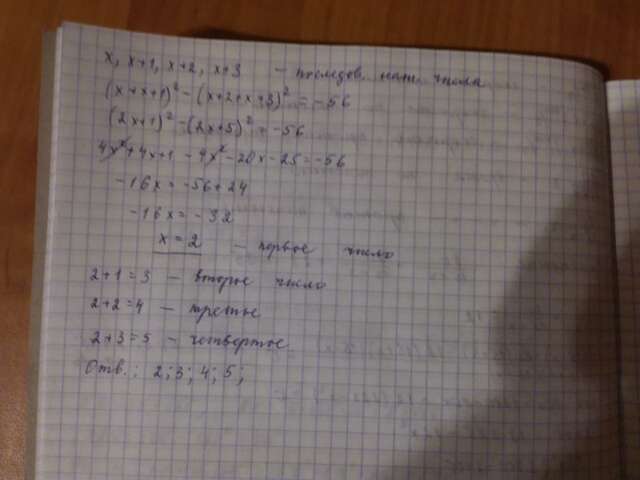 x, x+1, x+2, x+3 – последов. нат. числа
(x+x+1)² – (x+2+x+3)² = -56
(2x+1)² – (2x+5)² = -56
4x² + 4x+1 - 4x² - 20x - 25 = -56
-16x = -56+24
-16x = -32
x = 2 – первое число
2+1=3 – второе число
2+2=4 – третье
2+3=5 – четвертое
Отв.: 2; 3; 4; 5;